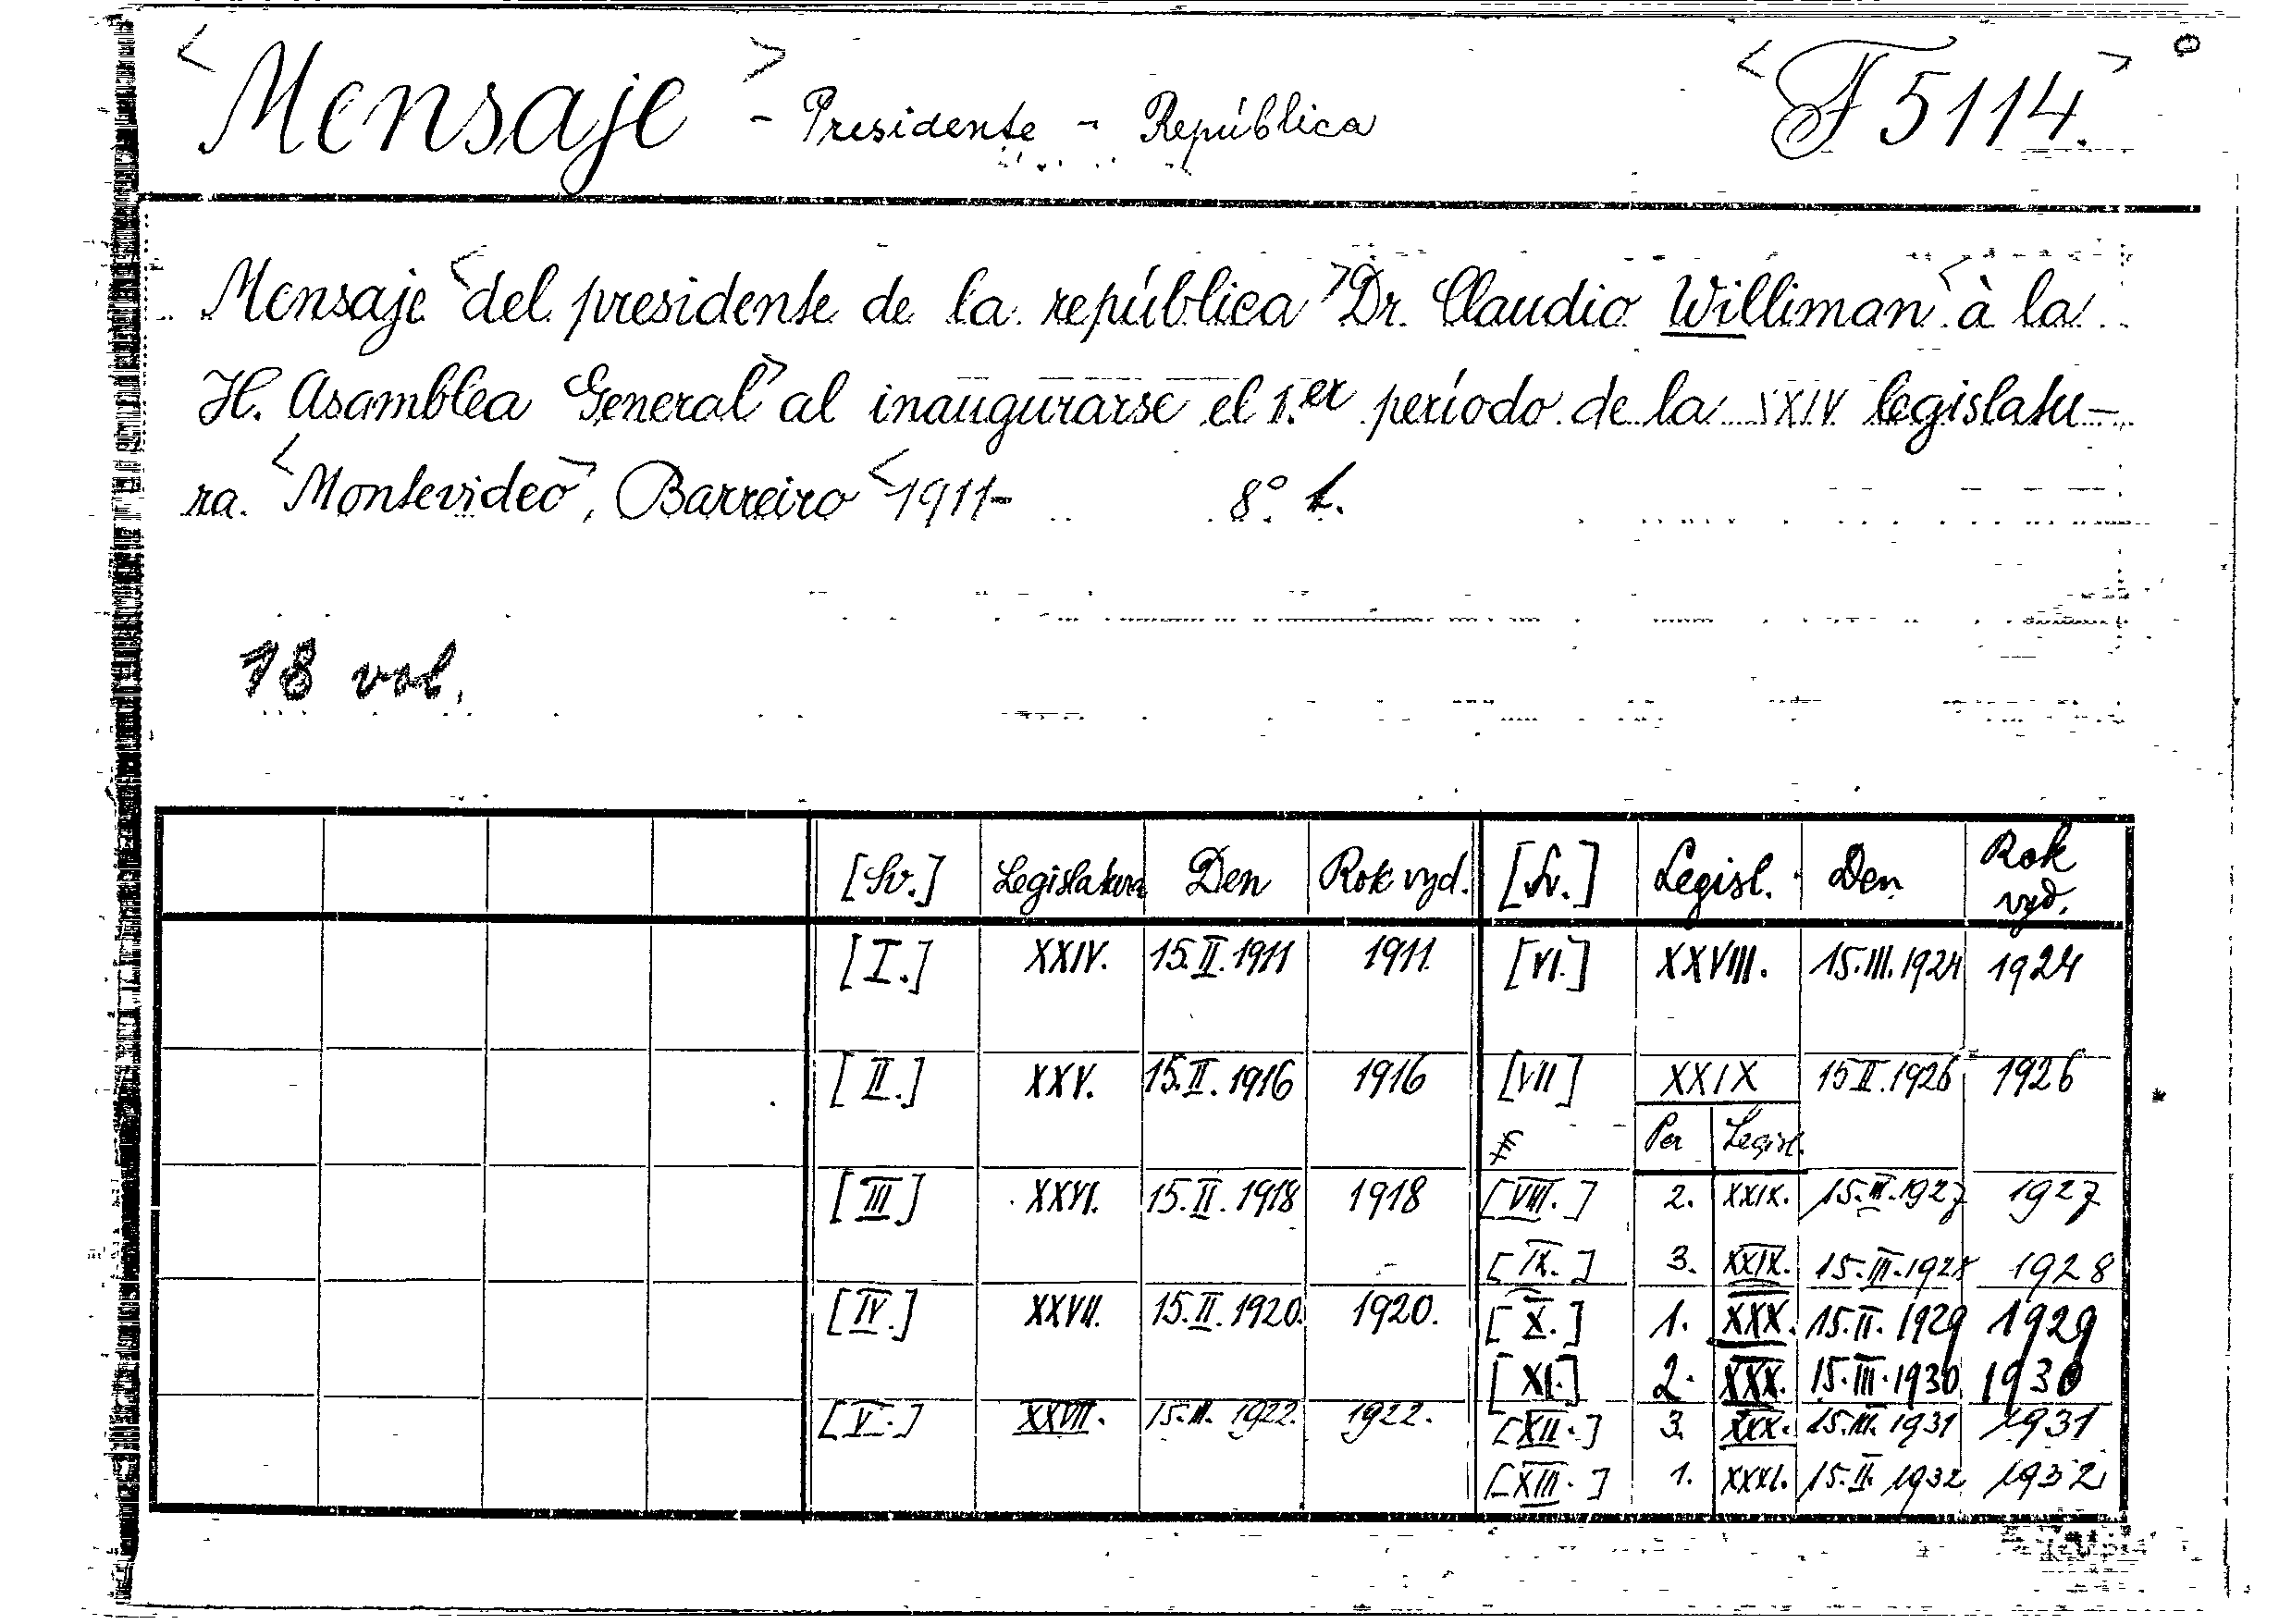 <Mensaje> - Presidente - República <F 5114.>
Mensaje <del presidente de la república> Dr. Claudio Williman <à la
H. Asamblea General> al inaugurarse el 1.er período de la XXIV legislatu-
ra. <Montevideo>, Barreiro <1911- 8°
18 vol.
[Sv.] Legislatura Den Rok vyd. [Sv.] Legisl. Den Rok vyd.
[I.] XXIV. 15.II.1911 1911. [VI.] XXVIII. 15.III.1924 1924
[II.] XXV. 15.II.1916 1916 [VII] XXIX 15 II.1926 1926
Per Legisl.
[III] XXVI. 15.II.1918 1918 [VIII.] 2. XXIX. 15.III.1927 1927
[IX.] 3. XXIX. 15.III.1928 1928
[IV.] XXVII. 15.II.1920. 1920. [X.] 1. XXX. 15.II.1929 1929
[XI.] 2. XXX. 15.III.1930 1930
[V.] XXVII. 15.III.1922. 1922. [XII.] 3. XXX. 15.III.1931 1931
[XIII.] 1. XXXI. 15.II.1932 1932